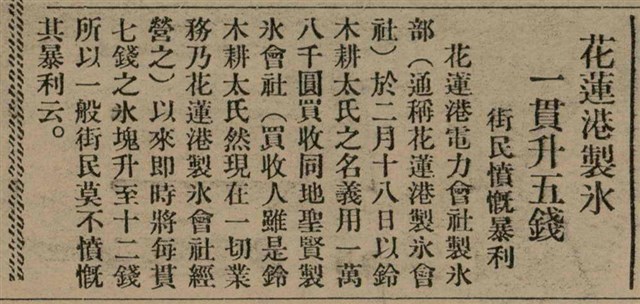 花蓮港製氷
一貫升五錢
街民憤慨暴利
花蓮港電力會社製氷
部（通稱花蓮港製氷會
社）於二月十八日以鈴
木耕太氏之名義用一萬
八千圓買收同地聖賢製
氷會社（買收人雖是鈴
木耕太氏然現在一切業
務乃花蓮港製氷會社經
營之）以來即時將每貫
七錢之氷塊升至十二錢
所以一般街民莫不憤慨
其暴利云。